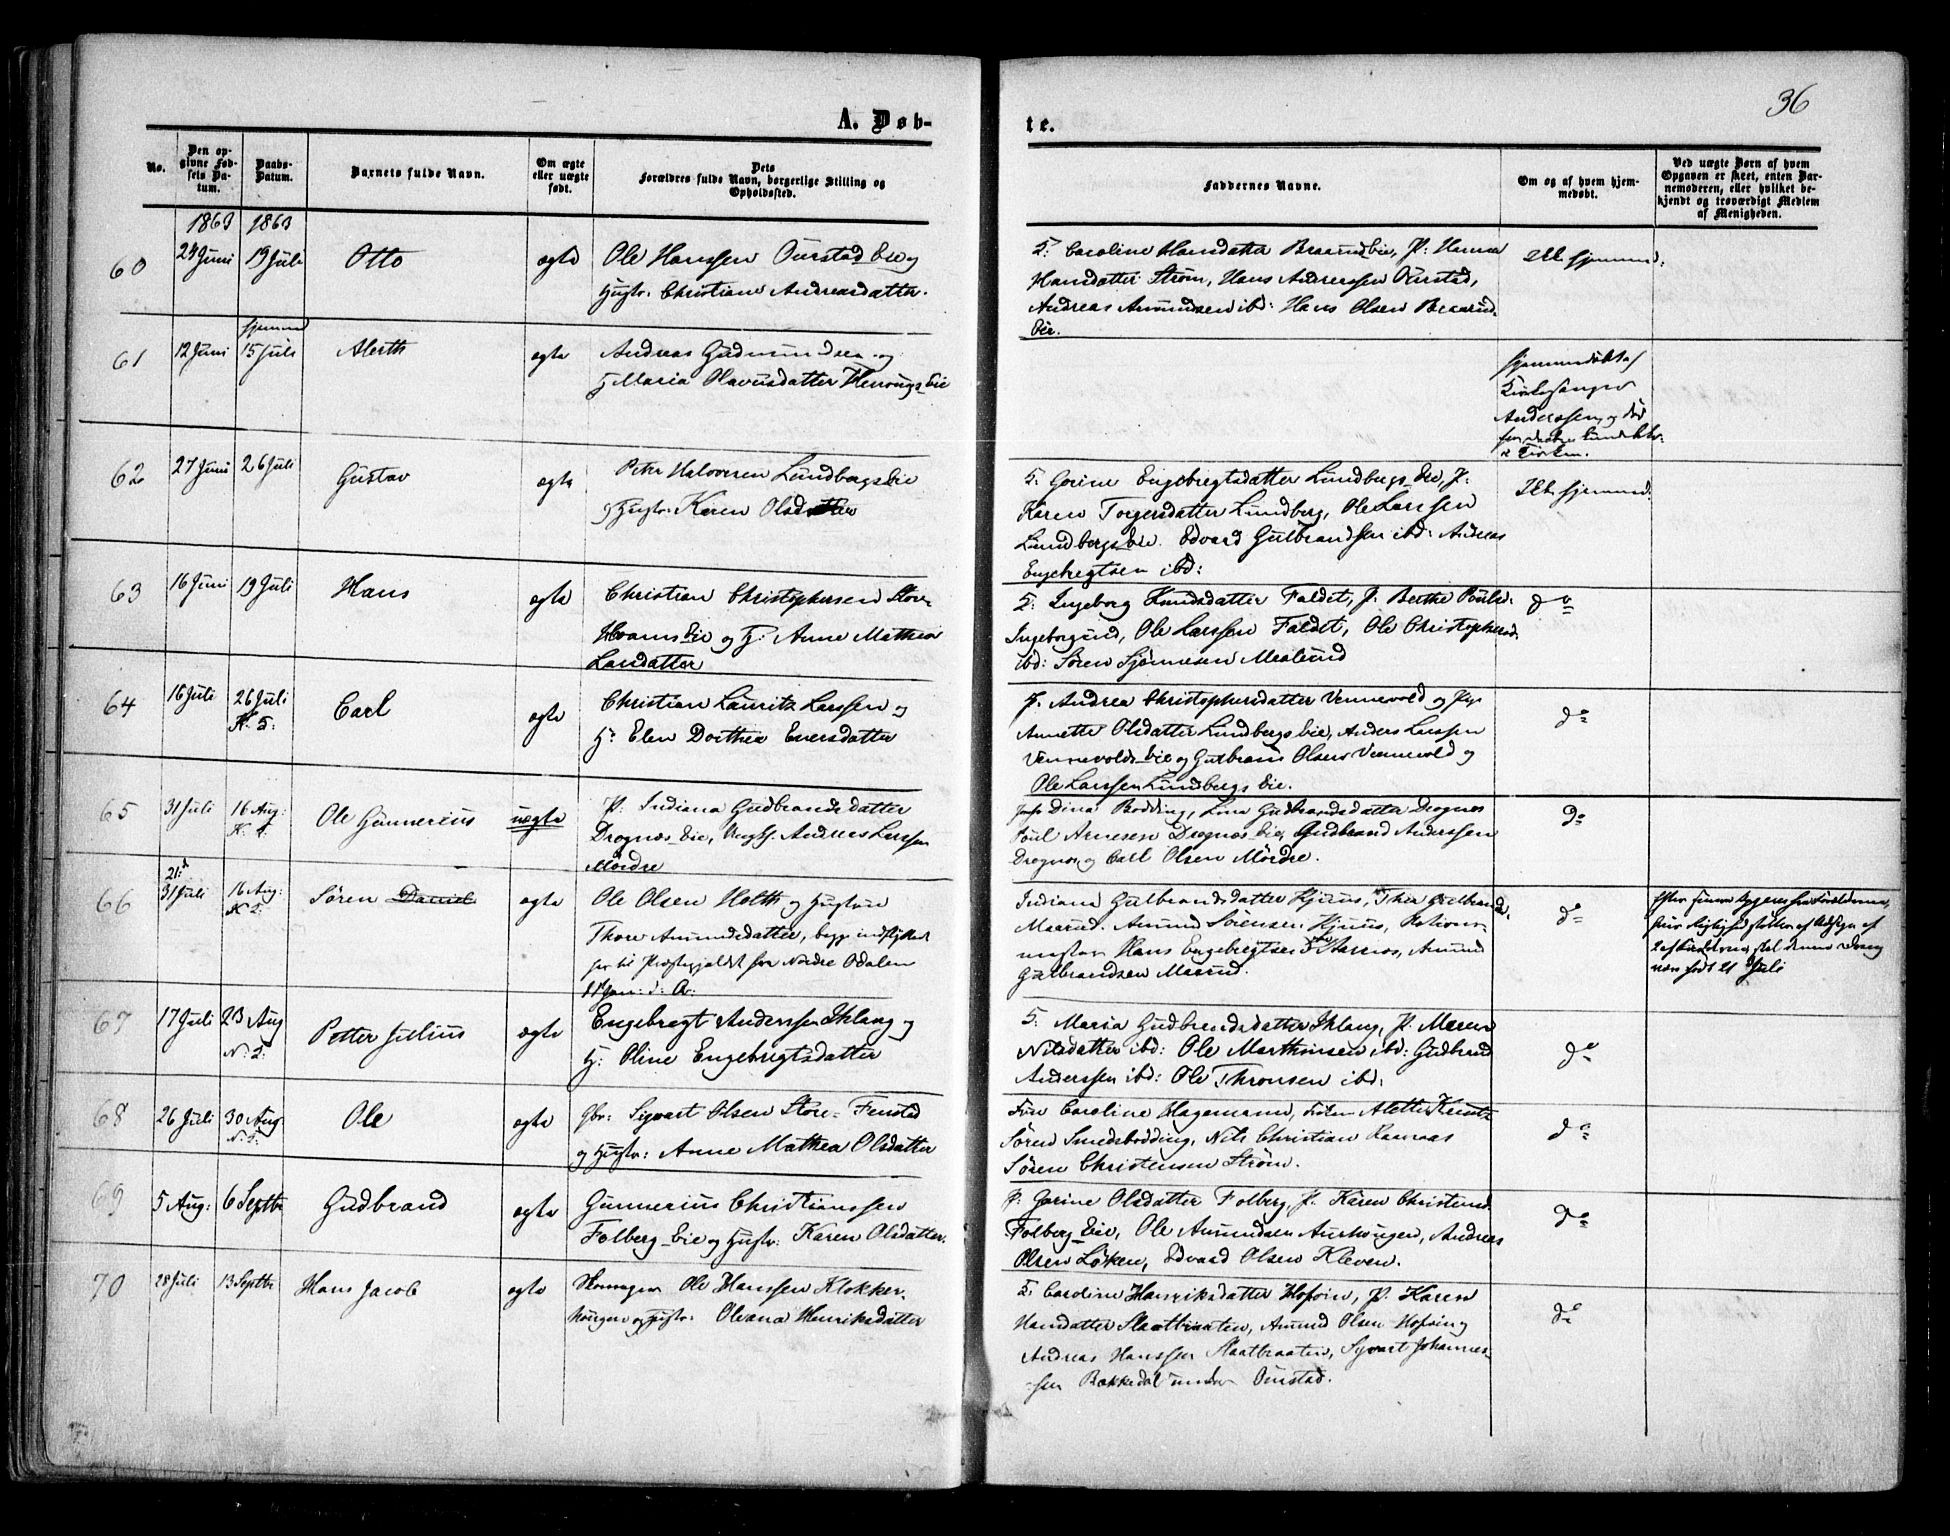 36
A. Døb-
te.
No.
Den op-
givne Fød-
sels Da-
tum.
Daabs-
Datum.
Barnets fulde Navn.
Om ægte
eller uægte
født.
Dets
Forældres fulde Navn, borgerlige Stilling og
Opholdssted.
Faddernes Navne.
Om og af hvem hjem-
medøbt.
Ved uægte Børn af hvem
Opgaven er skeet, enten Bar-
nemoderen, eller hvilket be-
kjendt og troværdigt Medlem
af Menigheden.
1863 1863
60 24 Juni 19 Juli Otto ægte Ole Hanssen Ourstad Eie og
Hustr: Christiane Andreasdatter.
Caroline Hansdatter Braarud Eie, P: Hanna
Hansdatter Strøm, Hans Anderssen Ourstad,
Andreas Amundsen ibd: Hans Olsen Braarud
Eie.
Ikke hjemmed:
61 12 Juni hjemmed 15 Juli Aleth ægte Andreas Gudmundsen og
H Maria Olavusdatter Eie
hjemmedøbt af
Kirkesanger
Anderssen, og død
62 27 Juni 26 Juli Gustav ægte Peter Halvorsen Lundbergs Eie
og Hustr: Karen Olsdatter
Gorine Engebregtsdatter Lundbergs Eie, P:
Karen Torgersdatter Lundberg, Ole Larssen
Lundbergs Eie. Edvard Gulbrandsen ibd: Andreas
Engebregtsen ibd:
Ikke hjemmed:
63 16 Juni 19 Juli Hans ægte Christian Christophersen Store-
Hvams Eie og H: Anne Mathea
Larsdatter
Ingeborg Knudsdatter Faldet, P: Berthe Pouls:
Ingeborgrud, Ole Larssen Faldet, Ole Christophersen
ibd: Søren Sjønnesen Mærlund
do
64 16 Juli 26 Juli Carl ægte Christian Lauritz Larssen og
H: Elen Dorthea Eversdatter
P. Andrea Christophersdatter Vennevold og Pig:
Annette Olsdatter Lundbergs Eie, Anders Larssen
Vennevolds Eie og Gulbrand Olsen Vennevold og
Ole Larssen Lundbergs Eie.
do
65 31 Juli 16 Aug: Ole Gunnerius uægte P. Indiana Gudbrandsdatter
Drognæs Eie, Ungk. Andreas Larssen
Mørdre
Dina Bodding, Lina Gudbrandsdatter Drognes
Poul Arnesen Drognæs Eie, Gudbrand Anderssen
Drognæs, og Carl Olsen Mørdre.
do
66 21: 31 Juli 16 Aug: Søren Daniel ægte Ole Olsen Holth og Hustrue
Thore Amundsdatter, begge indflyttede
her til Præstegjældet fra Nordre Odalen
11 Jan: d: A:
Indiana Gulbrandsdatter Hjuus, Thea Gulbrands
Maarud. Amund Sørensen Hjuus,
Hans Engebregtsen Aarnæs, Amund
Gulbrandsen Maarud.
do
født 21 Juli
67 17 Juli 23 Aug N: K: Petter Julius ægte Engebregt Anderssen Ihlang og
H: Oline Engebregtsdatter
Maria Gudbrandsdatter Ihlang, P. Maren
Nilsdatter ibd: Ole Marthinsen ibd: Gudbrand
Anderssen ibd: Ole Thronsen ibd:
do
68 26 Juli 30 Aug Ole ægte Gbr: Sigvart Olsen Store-Fenstad
og Hustr: Anne Mathea Olsdatter
Caroline Hagemann, Frøken Alette
Søren Smedsbodding, Nils Christian
Søren Christensen Strøm.
do
69 5 Aug: 6 Septbr Gudbrand ægte Gunnerius Christianssen
Folberg Eie og Hustr: Karen Olsdatter.
P: Gorine Olsdatter Folberg, P. Karen Christensd.
Folberg Eie, Ole Amundsen Aurhougen, Andreas
Olsen Løken, Edvard Olsen Kleven.
do
70 28 Juli 13 Septbr Hans Jacob ægte Ole Hanssen Klokker-
hougen og Hustr: Oleana Henriksdatter
Caroline Hanriksdatter Hofvin, P. Karen
Hansdatter Slaatbraaten, Amund Olsen Hofvin og
Andreas Hanssen Slaatbraaten, Syvart Johannes-
sen Bækkedal under Ourstad.
do